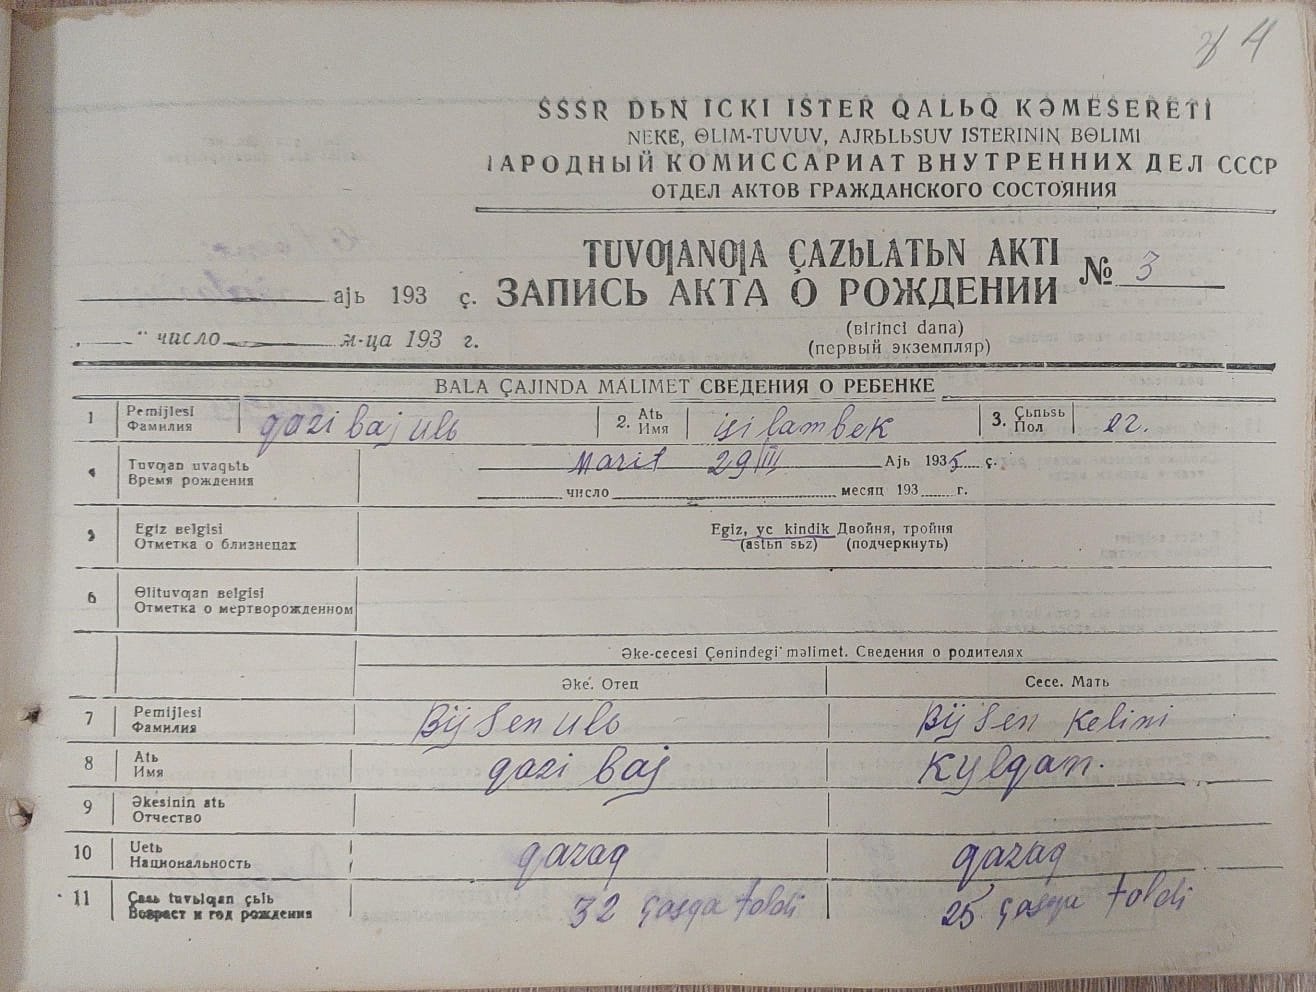 4
SSSR DЬN ICKI ISTER QALЬQ KƏMESERETI
NEKE, ƟLIM-TUVUV, AJRЬLЬSUV ISTERININ BƟLIMI
НАРОДНЫЙ КОМИССАРИАТ ВНУТРЕННИХ ДЕЛ СССР
ОТДЕЛ АКТОВ ГРАЖДАНСКОГО СОСТОЯНИЯ
TUVƢANƢA ÇAZЬLATЬN AKTI № 3
ajь 193 ç. ЗАПИСЬ АКТА О РОЖДЕНИИ
" число м-ца 193 г. (вirinci dana)
(первый экземпляр)
BALA ÇAJINDA MALIMET СВЕДЕНИЯ О РЕБЕНКЕ
1 Pemijlesi Фамилия qazi baj ulь 2. Atь Имя isi lambek 3. Çьnьsь Пол er.
4 Tuvƣan uvaqьtь Время рождения Marit 29/III Ajь 1935 ç.
число месяц 193 г.
5 Egiz вelgisi Отметка о близнецах Egiz, yc kindik Двойня, тройня
(astьn sьz) (подчеркнуть)
6 Ɵlituvƣan вelgisi Отметка о мертворожденном
Əke-cecesi Çɵnindegi məlimet. Сведения о родителях
Əke. Отец Cece. Мать
7 Pemijlesi Фамилия Bijsen ulь Bijsen Kelini
8 Atь Имя qazi baj Kylqan.
9 Əkesinin atь Отчество
10 Uetь Национальность qazaq qazaq
11 Çasь tuvьlqan çьlь Возраст и год рождения 32 çasqa toldi 25 çasqa toldi